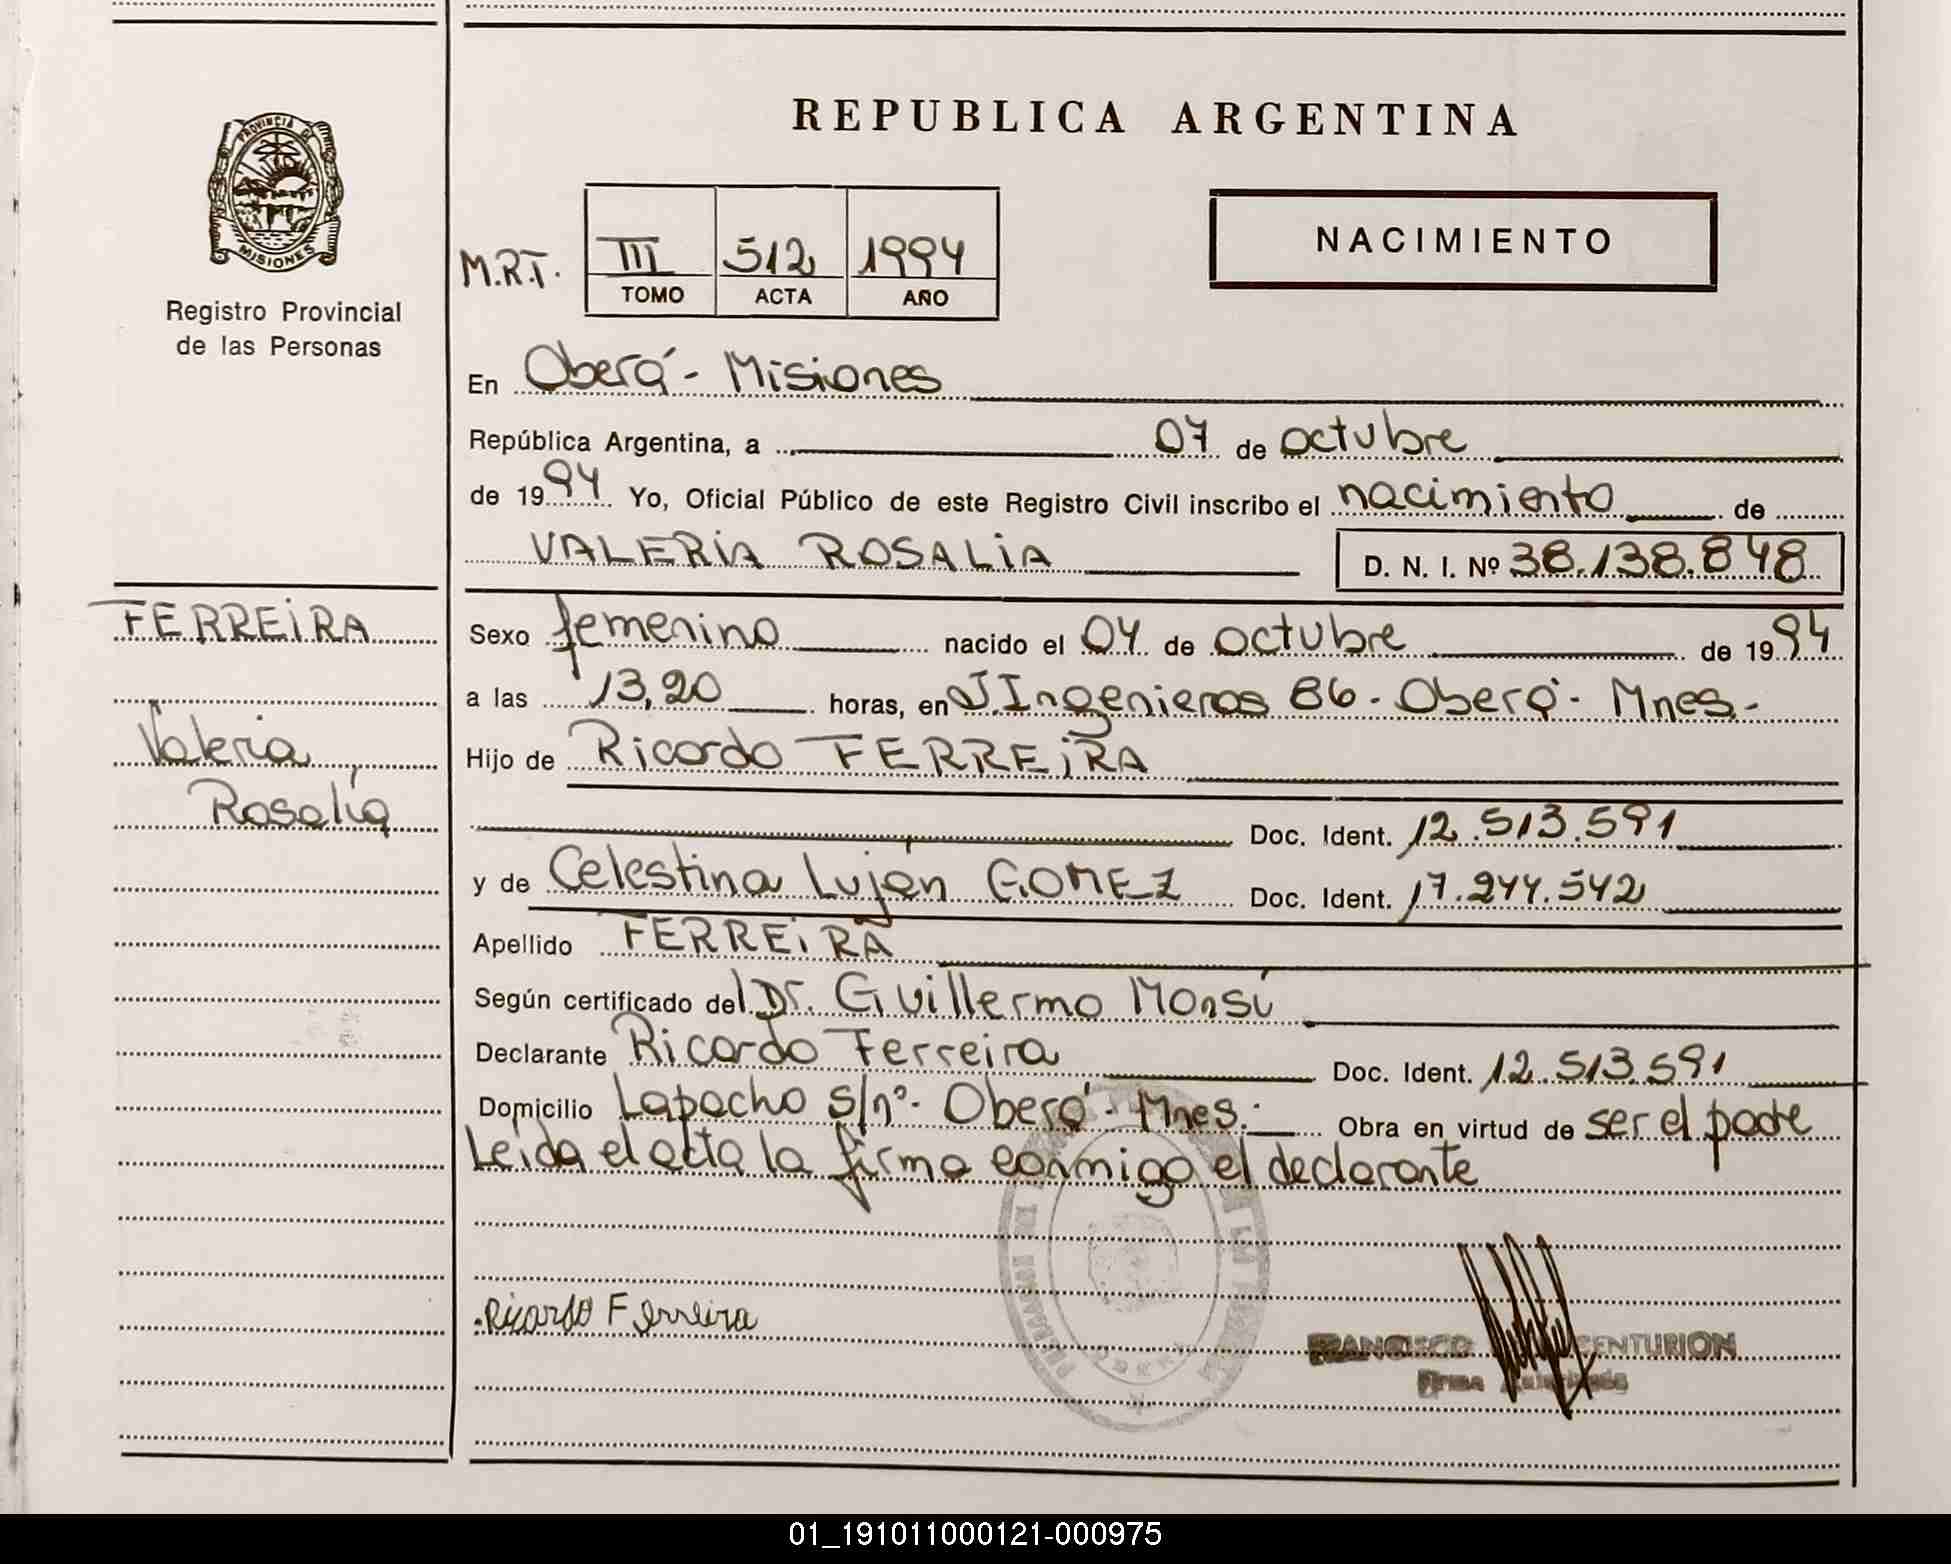 REPUBLICA ARGENTINA
PROVINCIA DE
MISIONES
Registro Provincial
de las Personas
M.R.T. III 512 1994
TOMO ACTA AÑO
NACIMIENTO
En Oberá - Misiones
República Argentina, a 07 de octubre
de 1994 Yo, Oficial Público de este Registro Civil inscribo el nacimiento de
VALERIA ROSALIA D. N. I. Nº 38.138.848
FERREIRA
Valeria
Rosalía
Sexo femenino nacido el 04 de octubre de 1994
a las 13,20 horas, en J.Ingenieros 86 - Oberá - Mnes.-
Hijo de Ricardo FERREIRA
Doc. Ident. 12.513.591
y de Celestina Luján GOMEZ Doc. Ident. 17.244.542
Apellido FERREIRA
Según certificado del Dr. Guillermo Monsú
Declarante Ricardo Ferreira Doc. Ident. 12.513.591
Domicilio Lapacho s/nº - Oberá - Mnes.- Obra en virtud de ser el padre
Leída el acta la firma conmigo el declarante
Ricardo Ferreira
FRANCISCO CENTURION
Firma
01_191011000121-000975